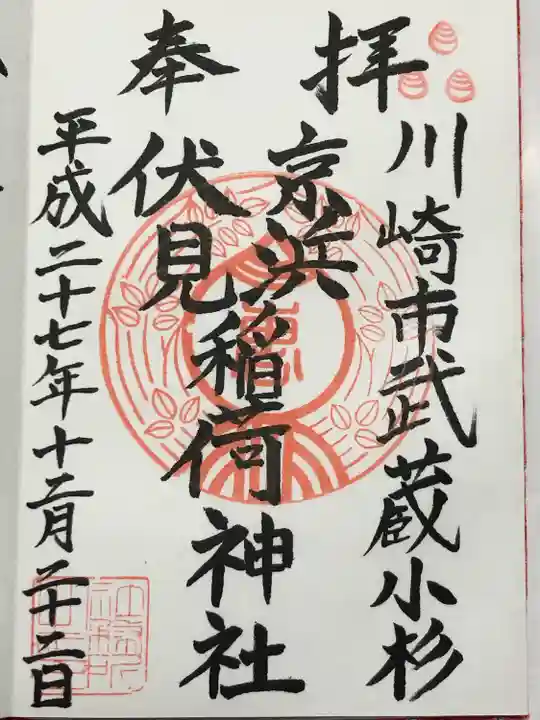 奉拝
川崎市武蔵小杉
京浜
伏見
稲荷神社
平成二十七年十二月二十二日